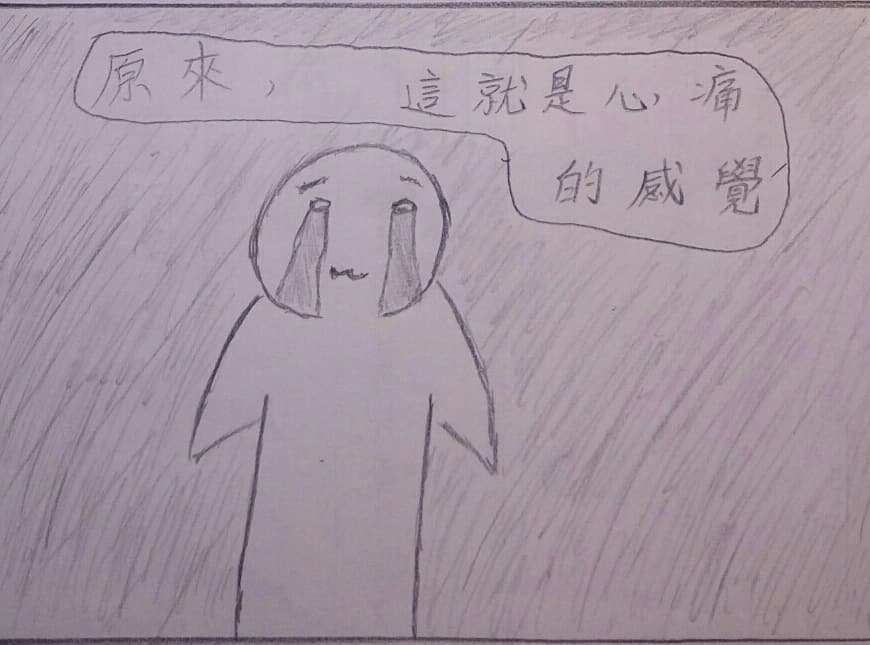 原來，這就是心痛
的感覺